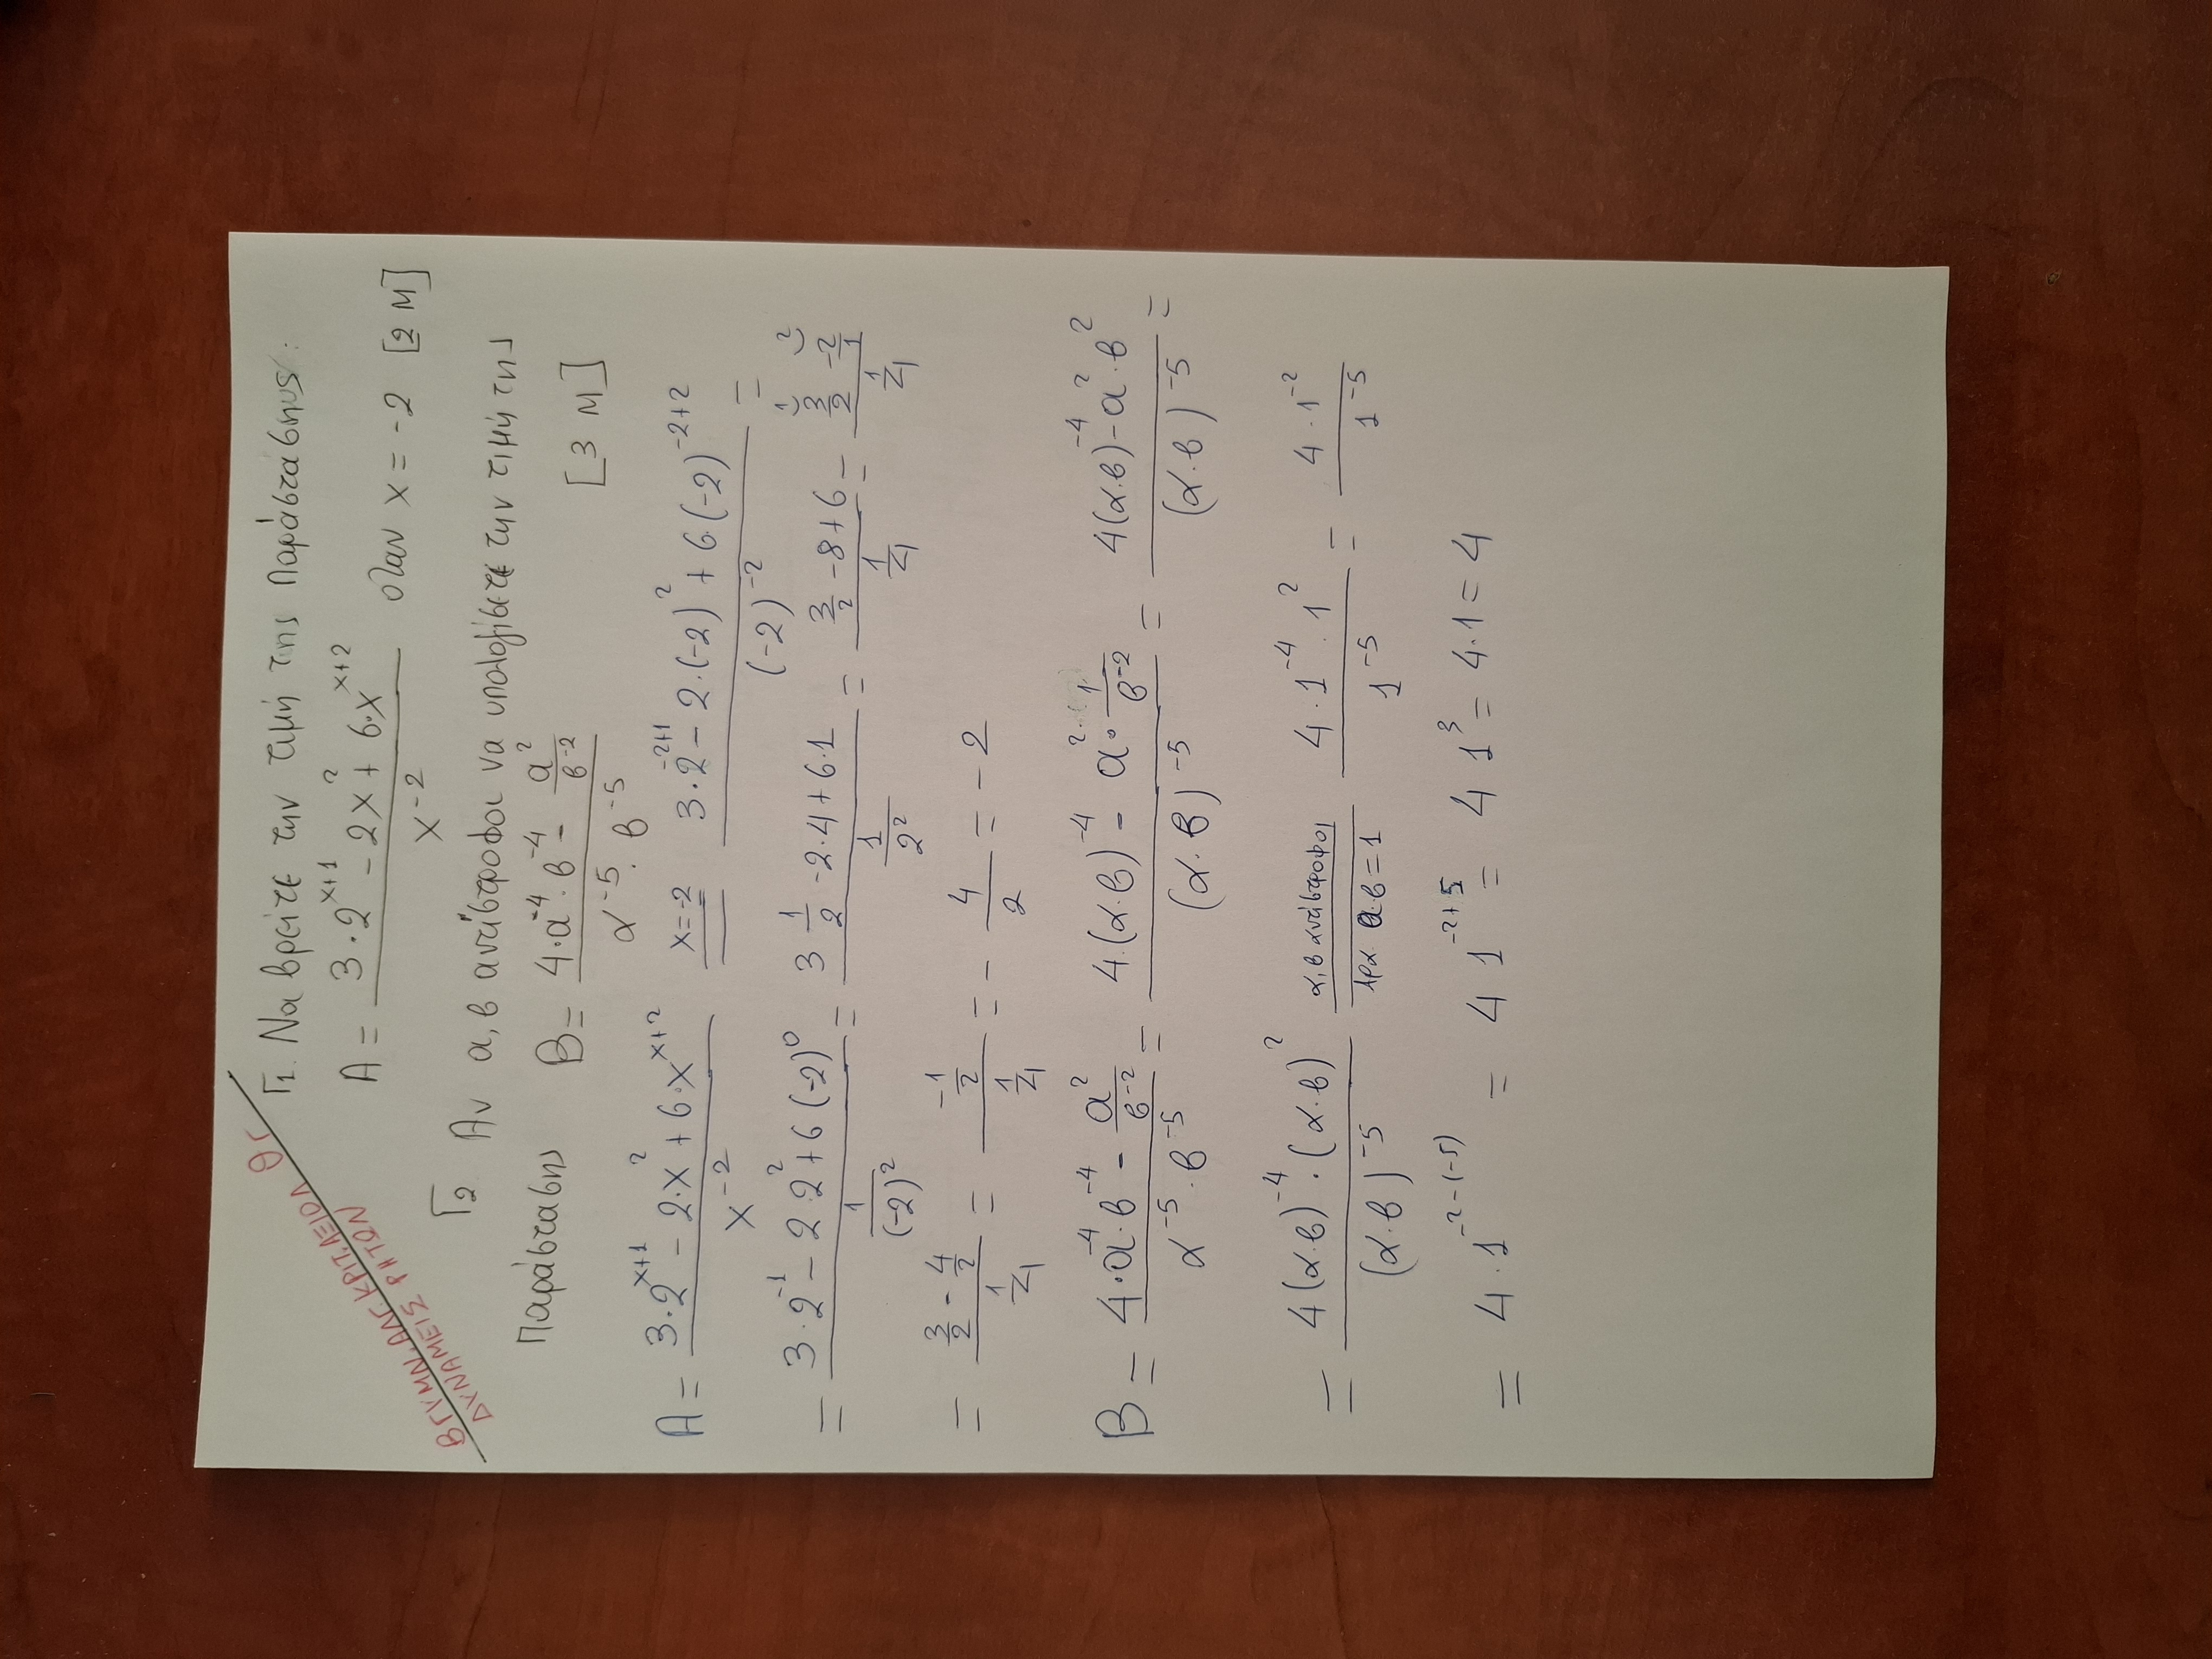 Β ΓΥΜΝ. ΑΛΓ. ΚΡΙΤ. ΑΞΙΟΛ Θς
ΔΥΝΑΜΕΙΣ ΡΗΤΩΝ
Γ1. Να βρείτε την τιμή της παράστασης:
A = (3·2^(x+1) - 2x^2 + 6·x^(x+2)) / x^(-2) όταν x = -2 [2 Μ]
Γ2 Αν α, β αντίστροφοι να υπολογίσετε την τιμή της
παράστασης B = (4·α^(-4)·β^(-4) - α^2/β^(-2)) / (α^(-5)·β^(-5)) [3 Μ]
A = (3·2^(x+1) - 2·x^2 + 6·x^(x+2)) / x^(-2) =(x=-2)= (3·2^(-2+1) - 2·(-2)^2 + 6·(-2)^(-2+2)) / (-2)^(-2) =
= (3·2^(-1) - 2·2^2 + 6(-2)^0) / (1/(-2)^2) = (3 1/2 - 2·4 + 6·1) / (1/2^2) = (3/2 - 8 + 6) / (1/4) = (3/2 - 2/1) / (1/4)
= (3/2 - 4/2) / (1/4) = (-1/2) / (1/4) = - 4/2 = - 2
B = (4·α^(-4)·β^(-4) - α^2/β^(-2)) / (α^(-5)·β^(-5)) = (4·(α·β)^(-4) - α^2·1/β^(-2)) / (α·β)^(-5) = (4(α·β)^(-4) - α^2·β^2) / (α·β)^(-5) =
= (4(α·β)^(-4)·(α·β)^2) / (α·β)^(-5) =(α, β αντίστροφοι άρα α·β=1)= (4·1^(-4)·1^2) / 1^(-5) = (4·1^(-2)) / 1^(-5)
= 4·1^(-2-(-5)) = 4 1^(-2+5) = 4 1^3 = 4·1 = 4